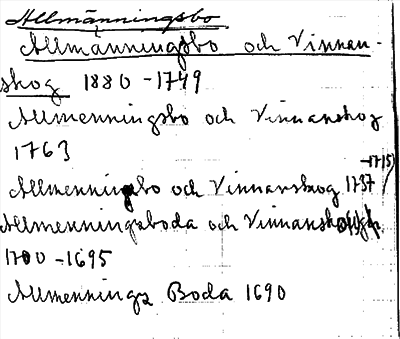 Allmänningsbo
Allmänningsbo och Vinnan-
skog 1880-1749
Allmenningsbo och Vinnanskog
1763
-1715)
Allmenningsbo och Vinnanskog 1737
Allmenningsboda och
1700-1695
Allmennings Boda 1690